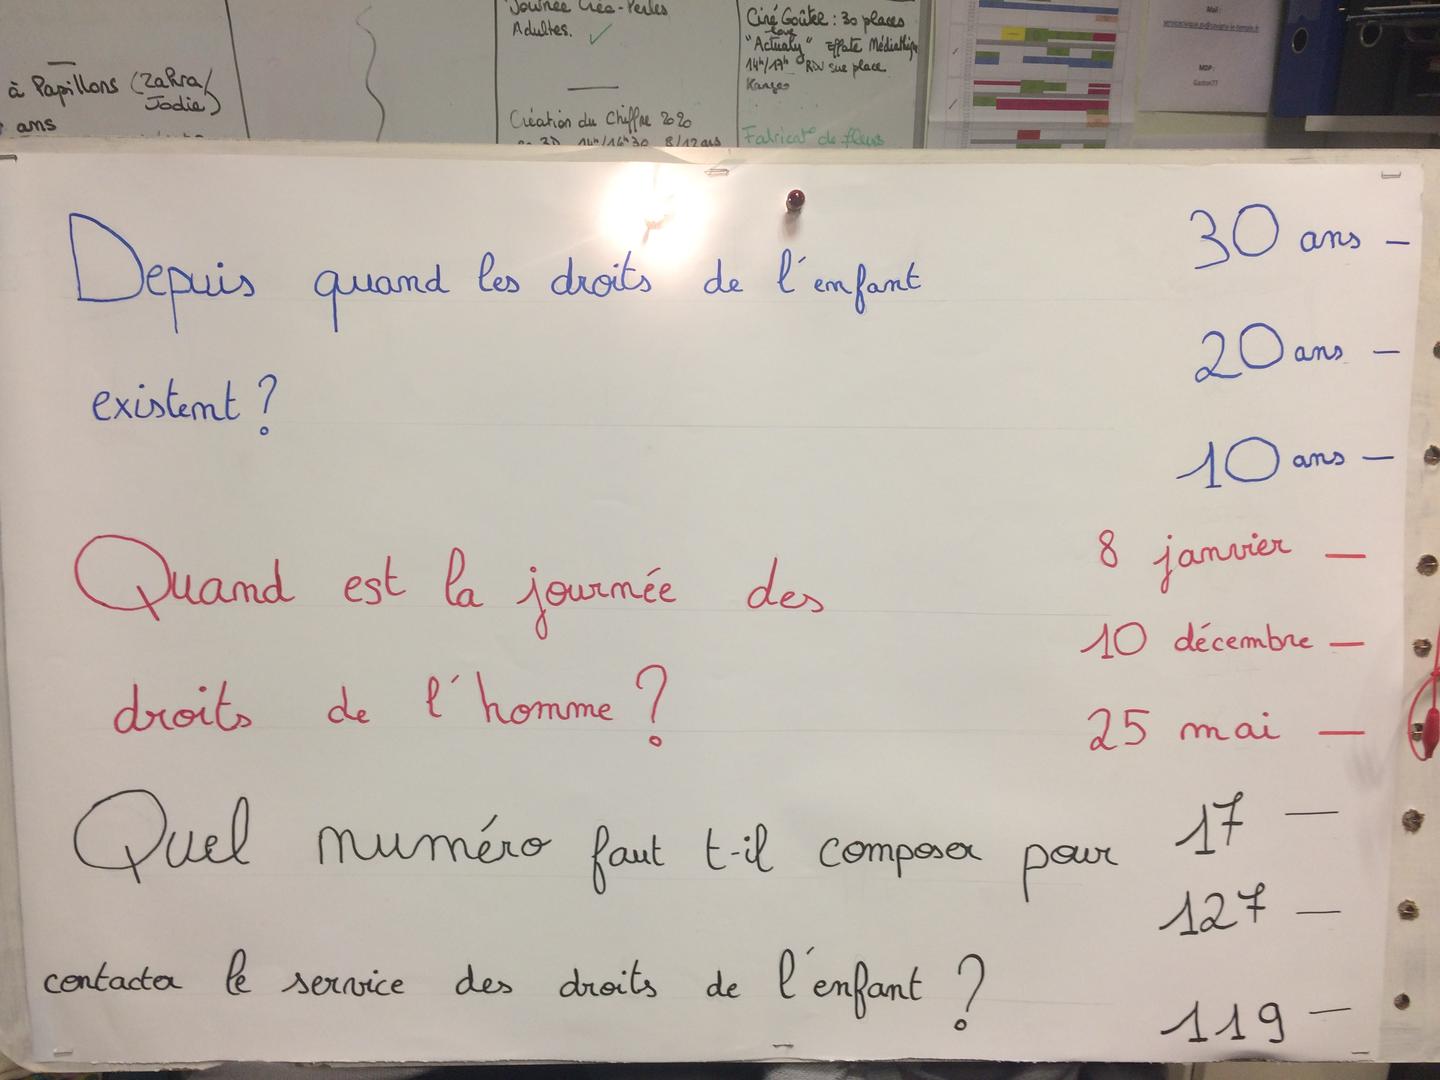 Journée Créa-Perles
Adultes.
Création du Chiffre 2020
en 3D 14h/16h30 8/12ans
Ciné Goûter : 30 places
"Actualy"
14h/17h RDV sur place
Fabricat° de fleurs
à Papillons (Zahra/
Jodie)
ans
Mail :
MDP :
Depuis quand les droits de l'enfant
existent ?
30 ans –
20 ans –
10 ans –
Quand est la journée des
droits de l'homme ?
8 janvier –
10 décembre –
25 mai –
Quel numéro faut t-il composer pour
contacter le service des droits de l'enfant ?
17 –
127 –
119 –